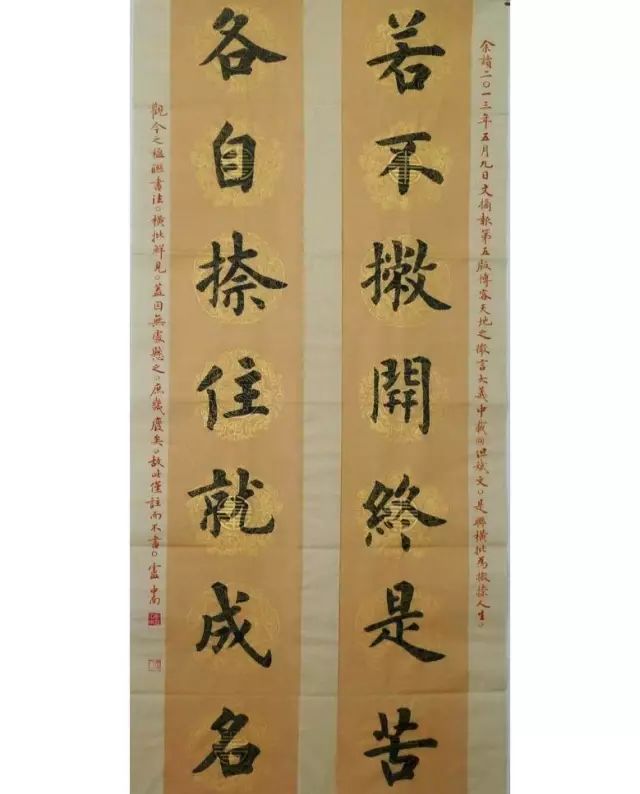 余讀二〇一三年五月九日文摘報第五版博客天地之微言大義中載向洪斌文。是聯橫批為撇捺人生。
若不撇開終是苦
各自捺住就成名
觀今之楹聯書法。橫批鮮見。蓋因無處懸之。庶幾廢矣。故此僅註而不書。盧中南